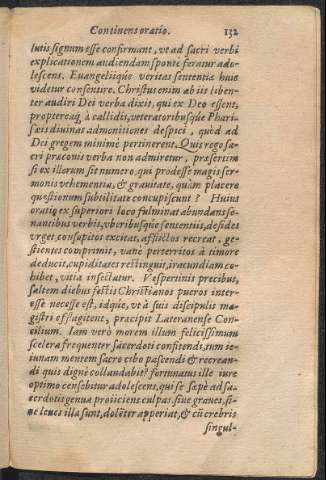 Continens oratio. 132
lutis signum esse confirmant, vt ad sacri verbi
explicationem audiendam sponte feratur ado-
lescens. Euangeliiqúe veritas sententiæ huic
videtur consentire. Christus enim ab iis liben-
ter audiri Dei verba dixit, qui ex Deo essent,
propterea q́ à callidis, veteratoribusque Phari-
sæis diuinas admonitiones despici, quòd ad
Dei gregem minimè pertinerent. Quis rogo sa-
cri præconis verba non admiretur, præsertim
si ex illorum sit numero, qui prodesse magis ser-
monis vehementia, & grauitate, quàm placere
quæstionum subtilitate concupiscunt? Huius
oratio ex superiori loco fulminat abundans so-
nantibus verbis, vberibusque sententiis, desides
vrget, consopitos excitat, afflictos recreat, ge-
stientes comprimit, vanè perterritos à timore
deducit, cupiditates restinguit, iracundiam co-
hibet, vitia insectatur. Vespertinis precibus,
saltem diebus festis Christianos pueros inter-
esse necesse est, idque, vt à suis discipulis ma-
gistri efflagitent, præcipit Lateranense Con-
cilium. Iam verò morem illum felicissimum
scelera frequenter sacerdoti confitendi, tum ie-
iunam mentem sacro cibo pascendi & recrean-
di quis dignè collaudabit? fortunatus ille iure
optimo censebitur adolescens, qui se sæpè ad sa-
cerdotis genua proiiciens culpas, siue graues, si-
ue leues illa sunt, dolēter apperiat, & cū crebris
singul-